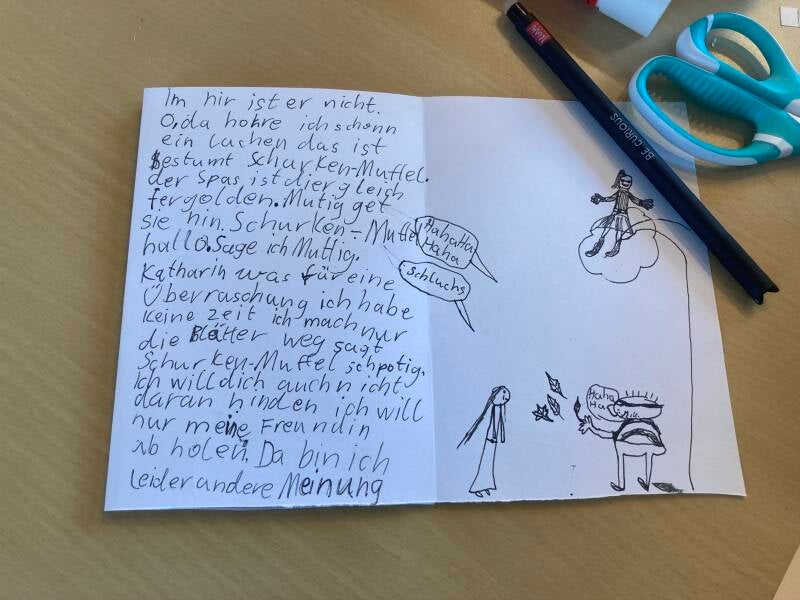 Im hir ist er nicht.
O, da hohre ich schonn
ein lachen das ist
Bestumt Schurken-Muffel.
der Spas ist dier gleich
fergolden. Mutig get
sie hin. Schurken-Muffel
hallo. Sage ich Muttig.
Katharin was für eine
Überraschung ich habe
keine zeit ich mach nur
die Blätter weg sagt
Schurken-Muffel schpotig.
Ich will dich auch nicht
daran hinden ich will
nur meine Freundin
ab holen. Da bin ich
leider andere Meinung
HahaHa
Haha
Schluchs
Haha
Ha
BE CURIOUS